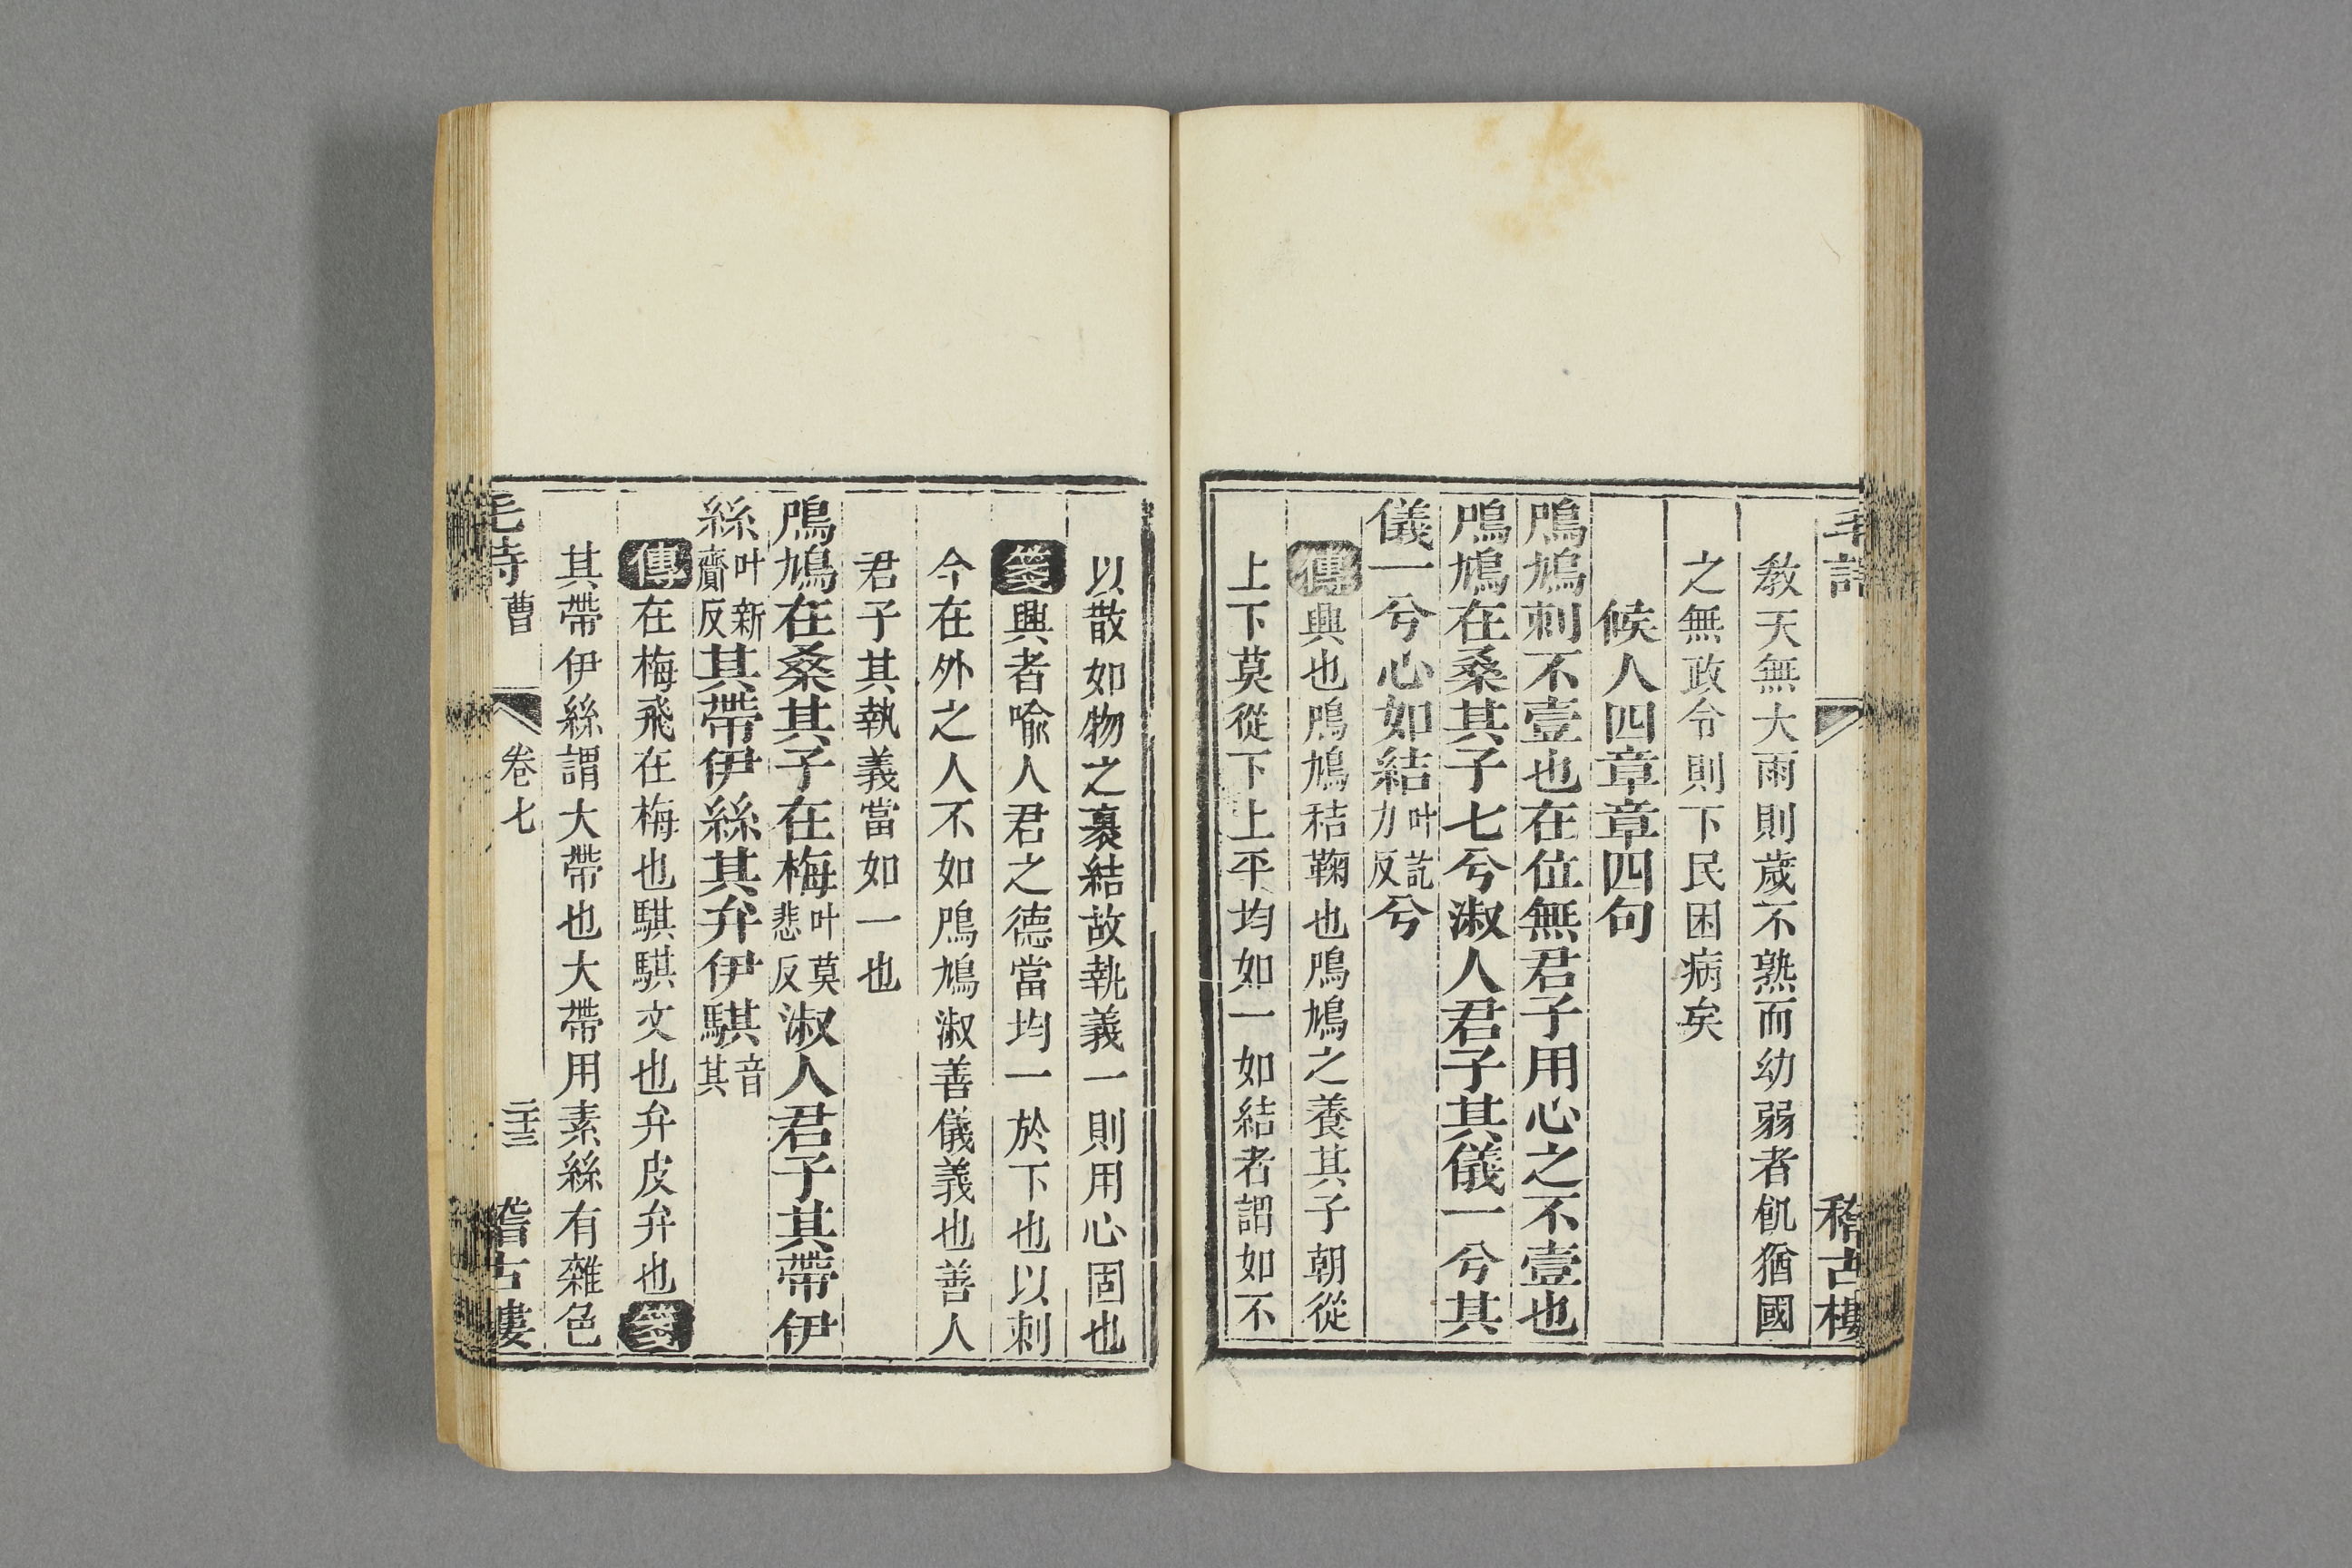 毛詩 稽古樓
教天無大雨則歲不熟而幼弱者飢猶國
之無政令則下民困病矣
候人四章章四句
鳲鳩刺不壹也在位無君子用心之不壹也
鳲鳩在桑其子七兮淑人君子其儀一兮其
儀一兮心如結叶訖力反兮
傳興也鳲鳩秸鞠也鳲鳩之養其子朝從
上下莫從下上平均如一如結者謂如不
以散如物之裹結故執義一則用心固也
箋興者喻人君之德當均一於下也以刺
今在外之人不如鳲鳩淑善儀義也善人
君子其執義當如一也
鳲鳩在桑其子在梅叶莫悲反淑人君子其帶伊
絲叶新齎反其帶伊絲其弁伊騏音其
傳在梅飛在梅也騏騏文也弁皮弁也箋
其帶伊絲謂大帶也大帶用素絲有雜色
毛詩 曹 卷七 二十三 稽古樓